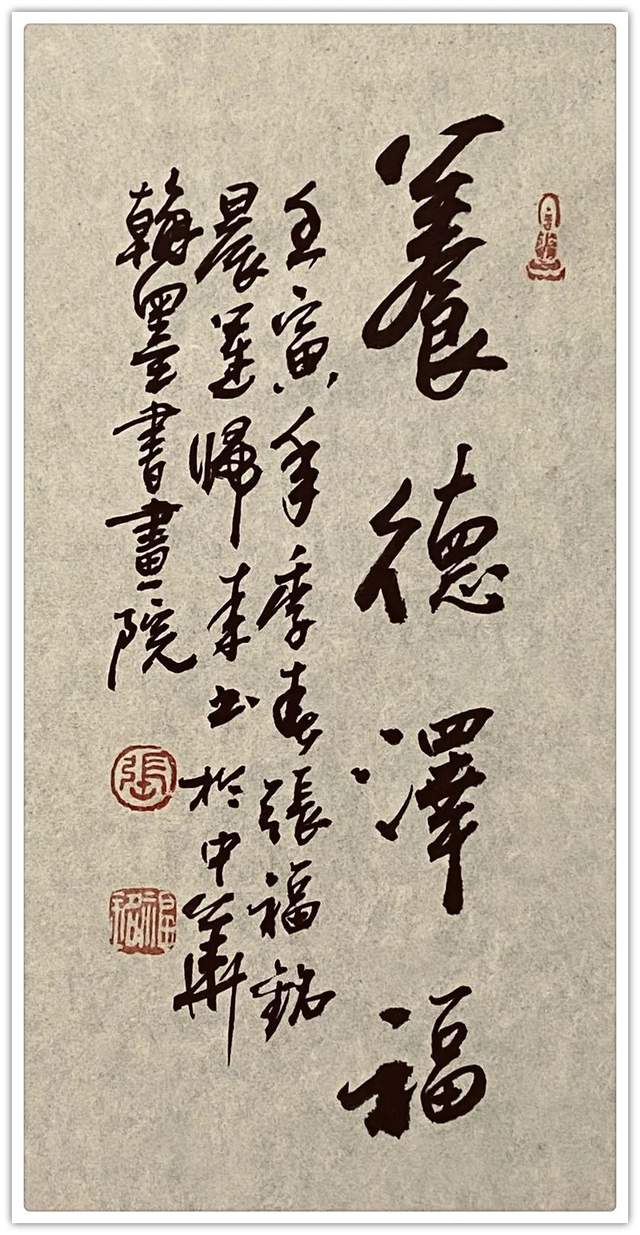 養德澤福
壬寅年季春張福銘
晨運歸来书於中華
翰墨書畫院
張
福銘